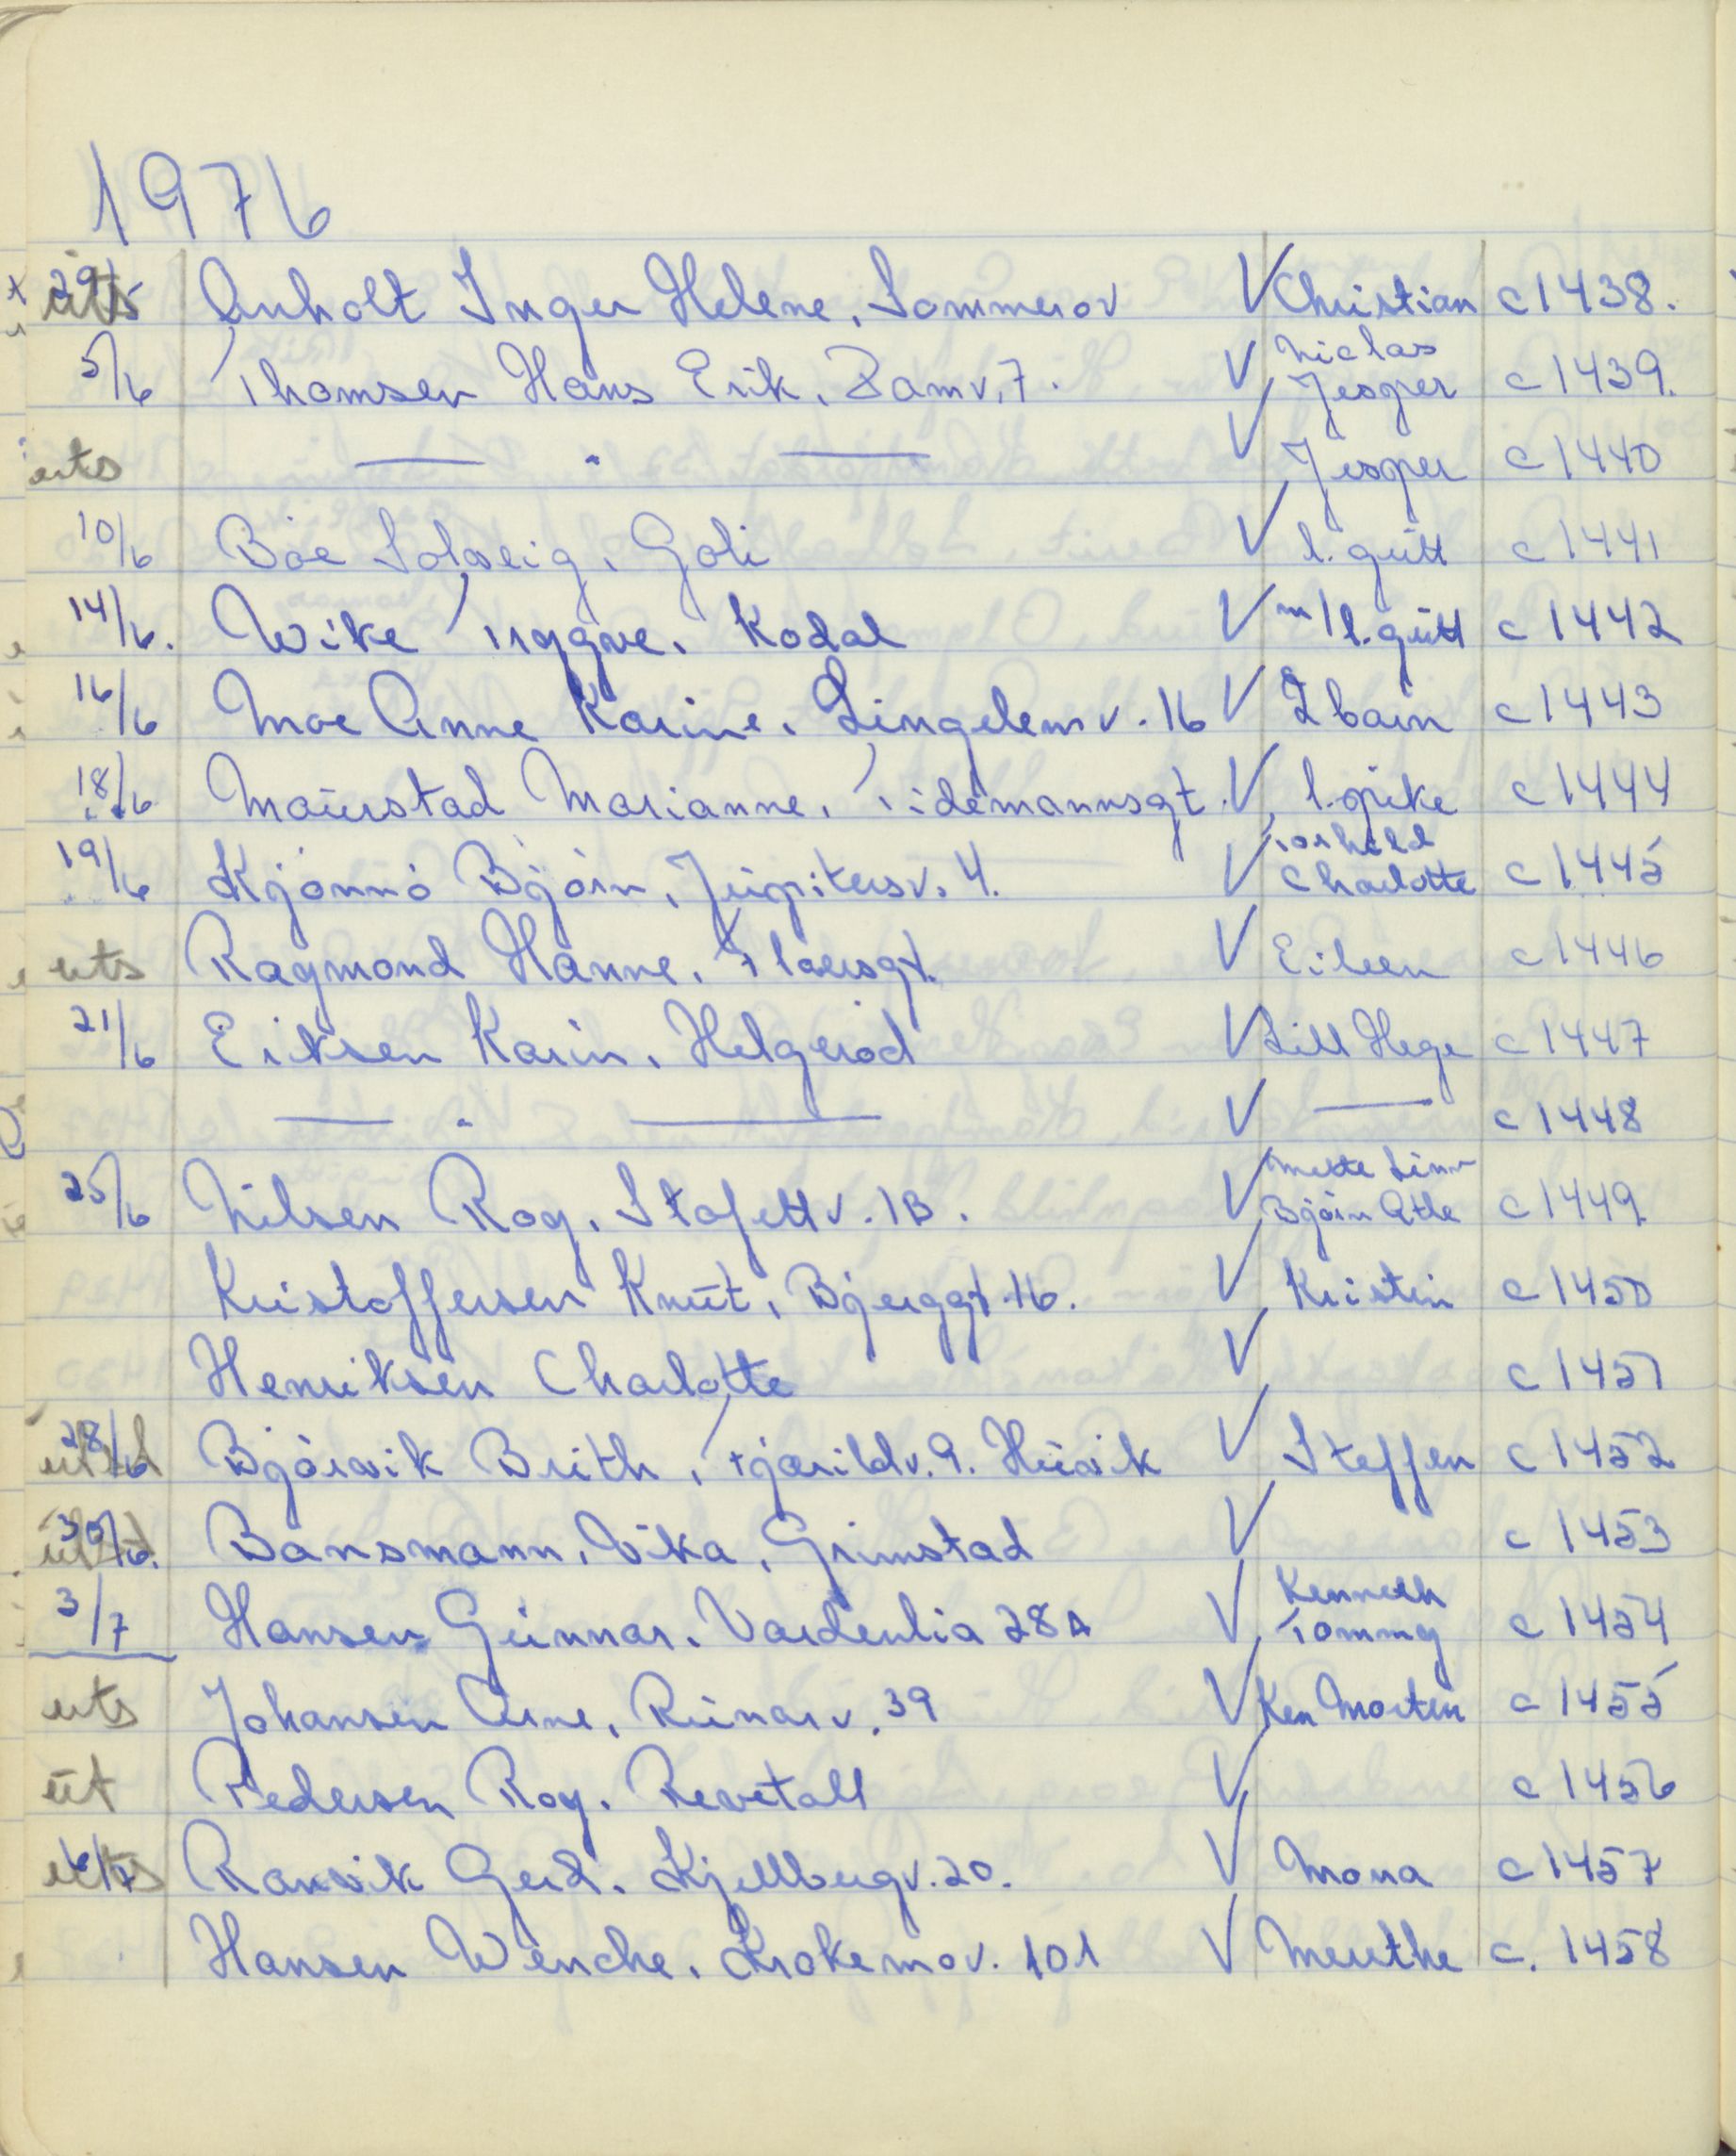 1976
29/5 uts Anholt Inger Helene, Sommerov V Christian c 1438.
5/6 Thomsen Hans Erik, Ramv. 7. V Niclas Jesper c 1439.
uts — " — V Jesper c 1440
10/6 Bøe Solveig, Goli V l. gutt c 1441
14/6. Wike Tryggve, Kodal V m/l. gutt c 1442
16/6 Moe Anne Karine, Lingelemv. 16 V 2 barn c 1443
18/6 Maurstad Marianne, Tidemannsgt. V l. pike c 1444
19/6 Kjønnø Bjørn, Jupitersv. 4. V Torhild Charlotte c 1445
uts Raymond Hanne, Floersgt. V Eileen c 1446
21/6 Eriksen Karin, Helgerød V Lill Hege c 1447
— " — V — c 1448
25/6 Nilsen Roy, Stafettv. 1B. V Mette Linn Bjørn Atle c 1449
Kristoffersen Knut, Bjerggt. 16. V Kristin c 1450
Henriksen Charlotte V c 1451
28/6 Bjørvik Brith, Tjærildv. 9. Husvik V Steffen c 1452
30/6. Bansmann, Vika, Grimstad V c 1453
3/7 Hansen Gunnar, Vardenlia 28A V Kenneth Tommy c 1454
uts Johansen Arne, Runarv. 39 V Ken Morten c 1455
ut Pedersen Roy, Revetall V c 1456
6/7 uts Ramvik Gerd, Kjellbergv. 20. V Mona c 1457
Hansen Wenche, Krokemov. 101 V Merethe c. 1458